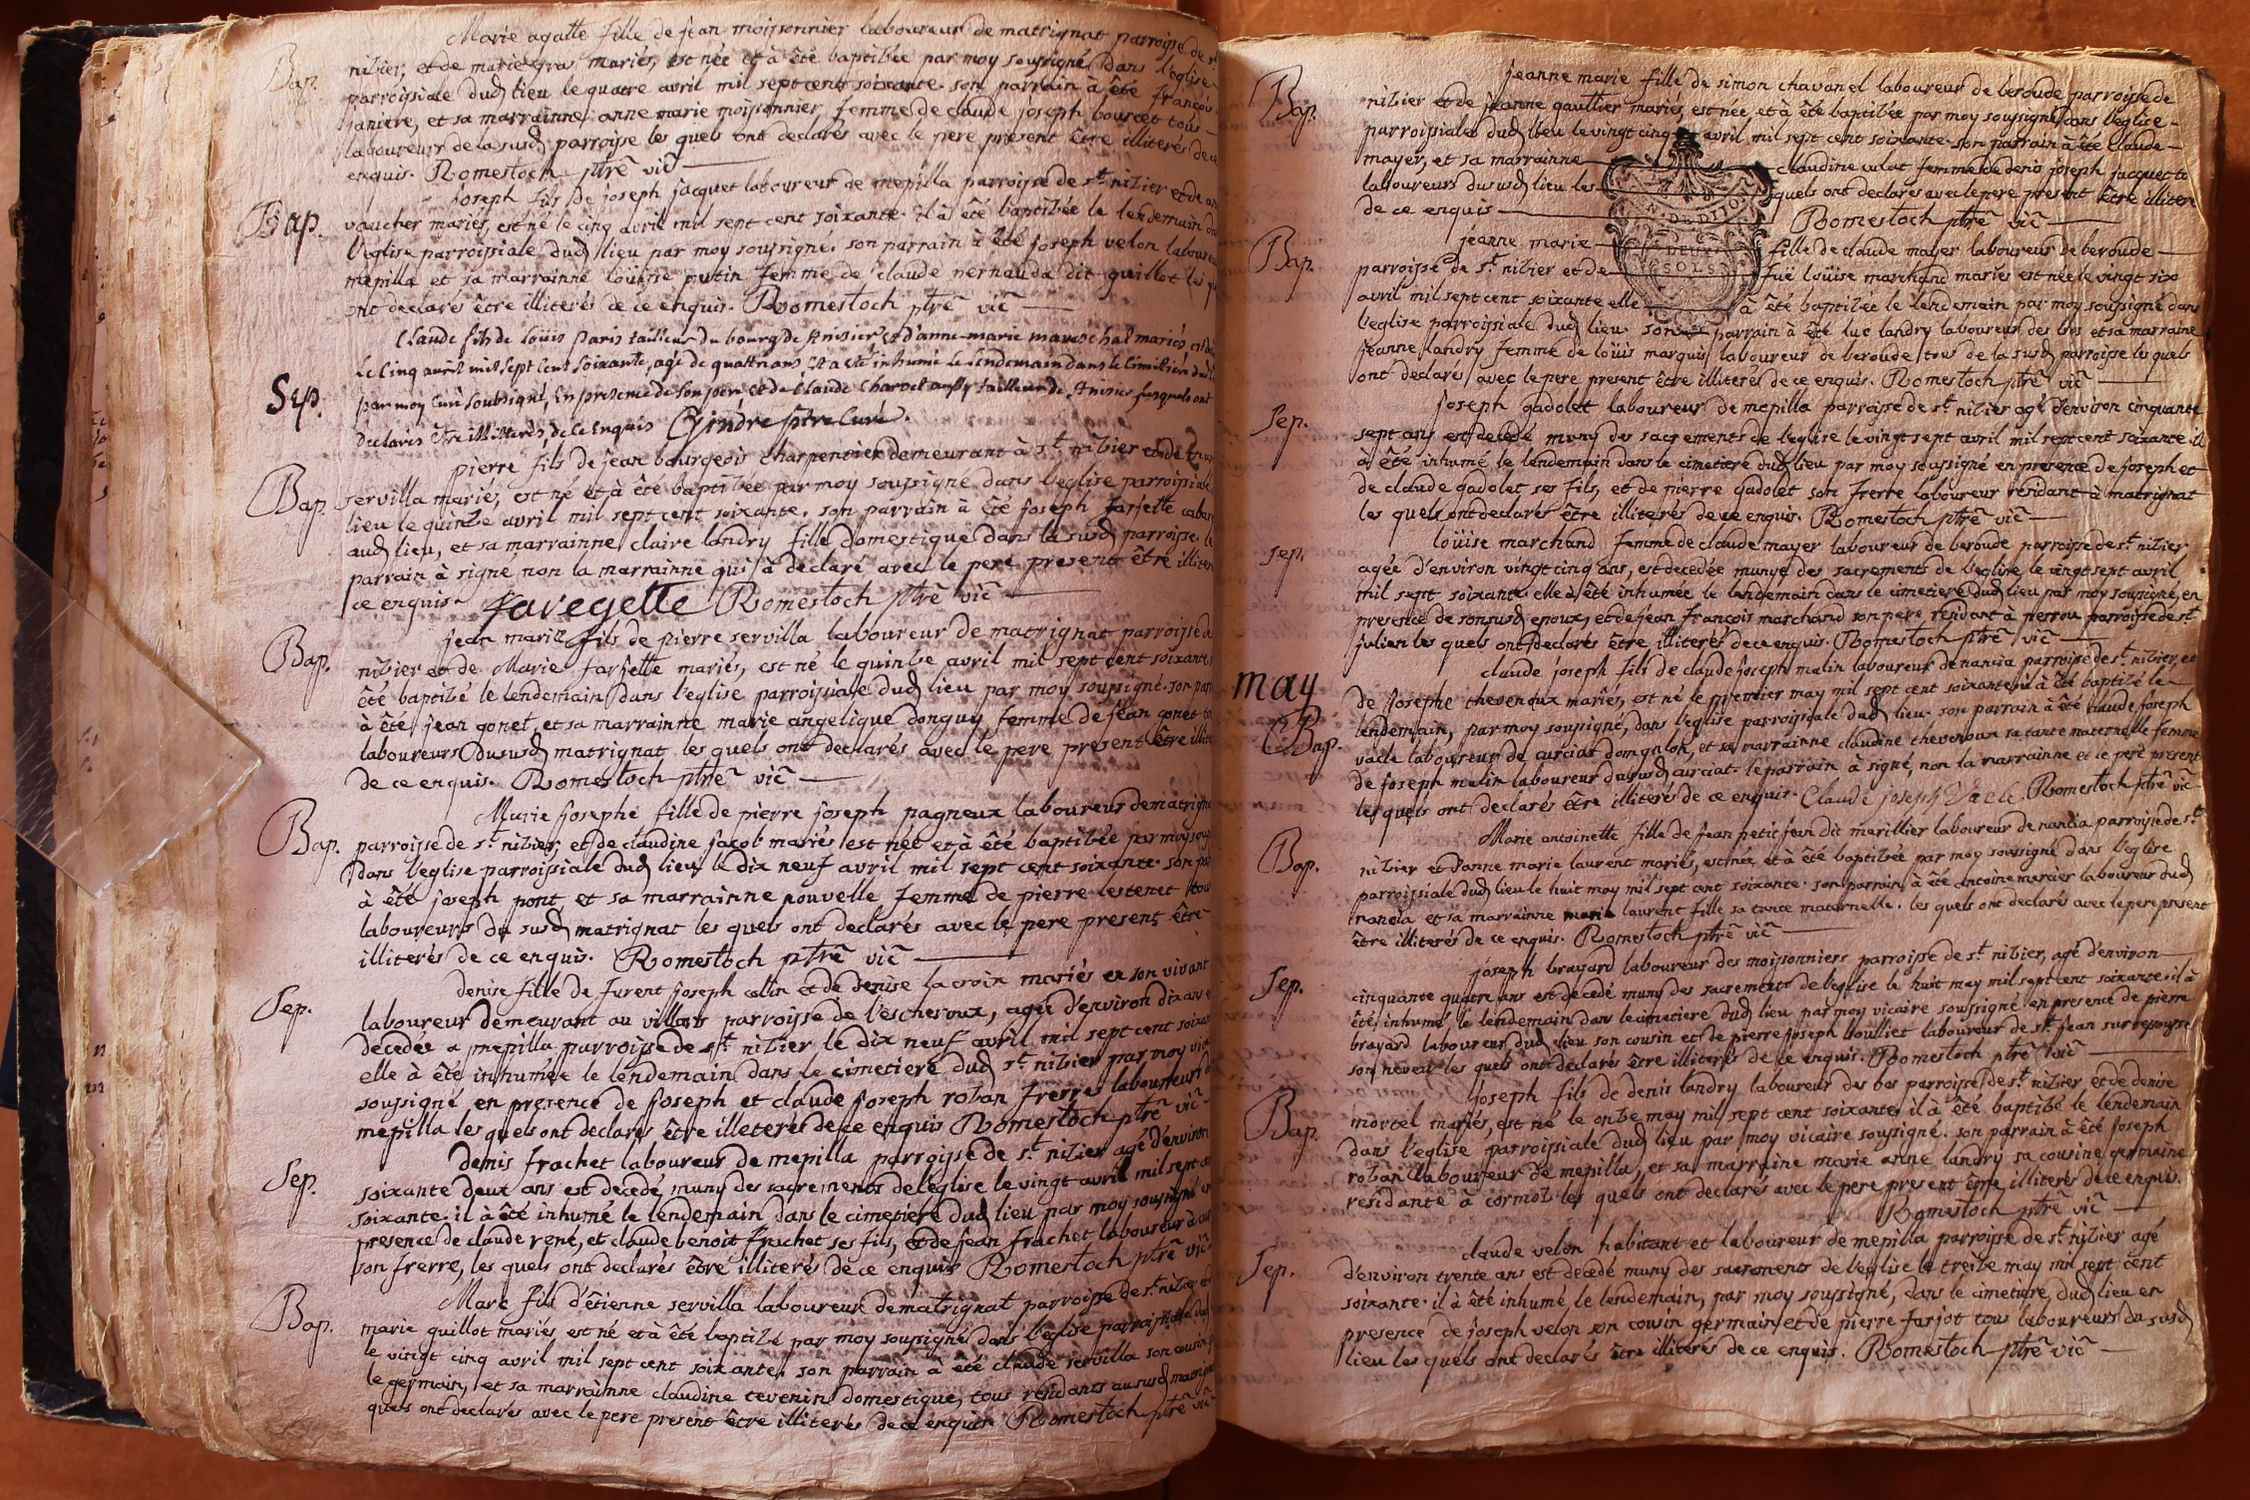 Marie agatte fille de jean moissonnier laboureur de matrignat parroisse de st
Bap. nizier, et de marie gras mariés, est née et à été baptisée par moy soussigné dans l'eglise
parroissiale dud lieu le quatre avril mil sept cent soixante. son parrain à été françois
janiere, et sa marrainne anne marie moissonnier femme de claude joseph bourcet tous
laboureurs de la susd parroisse les quels ont declarés avec le pere present être illiterés de ce
enquis. Romestoch ptrê vic
joseph fils de joseph jacquet laboureur de mepilla parroisse de st nizier et de
Bap. vaucher mariés, est né le cinq avril mil sept cent soixante. il à été baptisée le lendemain
l'eglise parroissiale dud lieu par moy soussigné. son parrain à été joseph velon
mepilla et sa marrainne loüise putin femme de claude nernauda dit guillot les
ont declaré être illiterés de ce enquis. Romestoch ptrê vic
Claude fils de loüis Paris tailleur du bourg de st nisier et d'anne-marie mareschal mariés est
le Cinq avril mil sept Cent Soixante, agé de quattr ans, Et a été inhumé Le lendemain dans le Cimitière dud
Sep. par moy Curé Soubsigné, En presence de Son pere et de Claude Charvet aussy tailleur de st nisier lesquels ont
declarés Etre illitterés, de Ce Enquis Cyindre ptre Curé.
pierre fils de jean bourgeois charpentier demeurant à st nizier et de
Bap. servilla mariés, est né et à été baptisée par moy soussigné dans l'eglise parroissiale
lieu le quinze avril mil sept cent soixante. son parrain à été joseph farjette
aud lieu, et sa marrainne claire landry fille domestique dans la susd parroisse. le
parrain à signé non la marrainne qui à declaré avec le pere present être illiter
ce enquis. faregette Romestoch ptrê vic
jean marie fils de pierre servilla laboureur de matrignat parroisse de
Bap. nizier et de Marie farjette mariés, est né le quinze avril mil sept cent soixante
été baptizé le lendemain dans l'eglise parroissiale dud lieu par moy soussigné. son
à été jean gonet, et sa marrainne marie angelique donguy femme de jean gonet
laboureurs du susd matrignat les quels ont declarés avec le pere present être
de ce enquis. Romestoch ptrê vic
Marie josephe fille de pierre joseph pagneux laboureur de matrigna
Bap. parroisse de st nizier, et de claudine jacob mariés est née et à été baptisée par moy
dans l'eglise parroissiale dud lieu le dix neuf avril mil sept cent soixante. son
à été joseph pont et sa marrainne nouvelle femme de pierre lestenet
laboureurs du susd matrignat les quels ont declarés avec le pere present être
illiterés de ce enquis. Romestoch ptrê vic
denise fille de furent joseph colin et de denise lacroix mariés en son vivant
Sep. laboureur demeurant au villars parroisse de l'escheroux, agée d'environ dix ans
decedée a mepilla parroisse de st nizier le dix neuf avril mil sept cent soixan
elle à été inhumée le lendemain dans le cimetiere dud st nizier par moy
soussigné en presence de joseph et claude joseph roban freres laboureurs
mepilla les quels ont declarés être illeterés de ce enquis Romestoch ptrê vic
denis frachet laboureur de mepilla parroisse de st nizier agé d'environ
Sep. soixante deux ans est decedé muny des sacrements de l'eglise le vingt avril mil sept
soixante. il à été inhumé le lendemain dans le cimetiere dud lieu par moy soussigné
presence de claude rené, et claude benoit frachet ses fils, et de jean frachet laboureur
son frerre, les quels ont declarés être illiterés de ce enquis Romestoch ptrê vic
Marc fils d'étienne servilla laboureur de matrignat parroisse de st nizier et
Bap. marie guillot mariés est né et à été baptizé par moy soussigné dans l'eglise parroissiale dud
le vingt cinq avril mil sept cent soixante. son parrain à été claude servilla son cousin
le germain, et sa marrainne claudine tevenin domestique, tous residants au susd
quels ont declarés avec le pere present être illiterés de ce enquis Romestoch ptrê vic
jeanne marie fille de simon chavanel laboureur de beroude parroisse de
Bap. nizier et de jeanne gaultier mariés, est née et à été baptisée par moy soussigné dans l'eglise
parroissiale dud lieu le vingt cinq avril mil sept cent soixante. son parrain à été claude
mayer, et sa marrainne claudine culat femme de denis joseph jacquet to
laboureurs du susd lieu les quels ont declarés avec le pere present être illiter
de ce enquis Romestoch ptrê vic
G. DE DIJON
DEUX
SOLS
jeanne marie fille de claude mayer laboureur de beroude
Bap. parroisse de st nizier et de fuë loüise marchand mariés est née le vingt six
avril mil sept cent soixante elle à été baptizée le lendemain par moy soussigné dans
l'eglise parroissiale dud lieu. son parrain à été luc landry laboureur des bos et sa marraine
jeanne landry femme de loüis marquis laboureur de beroude, tous de la susd parroisse les quels
ont declaré avec le pere present être illiterés de ce enquis. Romestoch ptrê vic
joseph gadolet laboureur de mepilla parroisse de st nizier agé d'environ cinquante
Sep. sept ans est decedé muny des sacrements de l'eglise le vingt sept avril mil sept cent soixante il
à été inhumé le lendemain dans le cimetiere dud lieu par moy soussigné en presence de joseph et
de claude gadolet ses fils, et de pierre gadolet son frerre laboureur residant à matrignat
les quels ont declarés être illiterés de ce enquis. Romestoch ptrê vic
loüise marchand femme de claude mayer laboureur de beroude parroisse de st nizier
Sep. agée d'environ vingt cinq ans, est decedée munye des sacrements de l'eglise le vingt sept avril
mil sept soixante elle à été inhumée le lendemain dans le cimetiere dud lieu par moy soussigné, en
presence de son susd epoux, et de jean françois marchand son pere residant à perrou parroisse de st
julien les quels ont declarés être illiterés de ce enquis. Romestoch ptrê vic
may
claude joseph fils de claude joseph malin laboureur de nancia parroisse de st nizier, et
de josephe thevenoux mariés, est né le premier may mil sept cent soixante il à été baptizé le
Bap. lendemain, par moy soussigné, dans l'eglise parroissiale dud lieu. son parrain à été claude joseph
vacle laboureur de curciat dongalon, et sa marrainne claudine thevenoux sa tante maternelle femme
de joseph malin laboureur du susd curciat. le parrain à signé, non la marrainne et ce pere present
les quels ont declarés être illiterés de ce enquis. Claude joseph Vacle Romestoch ptrê vic
Marie antoinette fille de jean petit jean dit marillier laboureur de nancia parroisse de st
Bap. nizier et d'anne marie laurent mariés, est née, et à été baptizée par moy soussigné dans l'eglise
parroissiale dud lieu le huit may mil sept cent soixante. son parrain à été antoine mercier laboureur dud
nancia et sa marrainne marie laurent fille sa tante maternelle. les quels ont declarés avec le pere present
être illiterés de ce enquis. Romestoch ptrê vic
joseph brayard laboureur des moissonniers parroisse de st nizier, agé d'environ
Sep. cinquante quatre ans est decedé muny des sacrements de l'eglise le huit may mil sept cent soixante. il à
été inhumé le lendemain dans le cimetiere dud lieu par moy vicaire soussigné en presence de pierre
brayard laboureur dud lieu son cousin et de pierre joseph boulliet laboureur de st jean sur ressouse
son neveu les quels ont declarés être illiterés de ce enquis. Romestoch ptrê vic
joseph fils de denis landry laboureur des bos parroisse de st nizier et de denise
Bap. mortel mariés, est né le onze may mil sept cent soixante, il à été baptizé le lendemain
dans l'eglise parroissiale dud lieu par moy vicaire soussigné. son parrain à été joseph
roban laboureur de mepilla, et sa marraine marie anne landry sa cousine germaine
residante à cormoz les quels ont declarés avec le pere present être illiterés de ce enquis.
Romestoch ptrê vic
claude velon habitant et laboureur de mepilla parroisse de st nizier agé
Sep. d'environ trente ans est decedé muny des sacrements de l'eglise le treize may mil sept cent
soixante. il à été inhumé le lendemain, par moy soussigné, dans le cimetiere dud lieu en
presence de joseph velon son cousin germain et de pierre farjot tous laboureurs du susd
lieu les quels ont declarés être illiterés de ce enquis. Romestoch ptrê vic